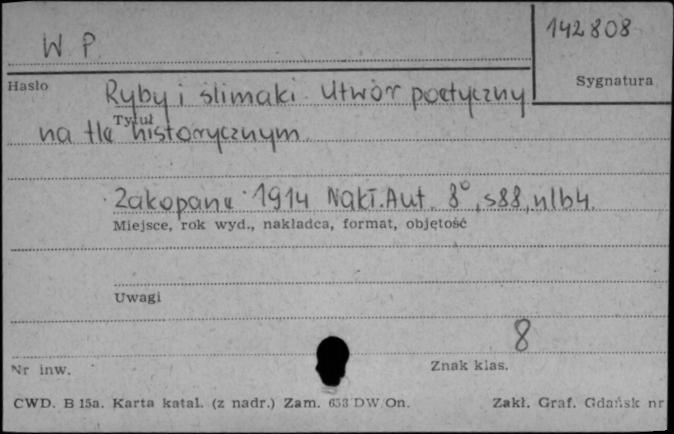 W P.
142808
Hasło
Sygnatura
Ryby i ślimaki. Utwór poetyczny
Tytuł
na tle historycznym.
Zakopane 1914 Nakł. Aut. 8°, s 88, nlb 4.
Miejsce, rok wyd., nakładca, format, objętość
Uwagi
8
Nr inw.
Znak klas.
CWD. B 15a. Karta katal. (z nadr.) Zam. 653 DW/On.
Zakł. Graf. Gdańsk nr